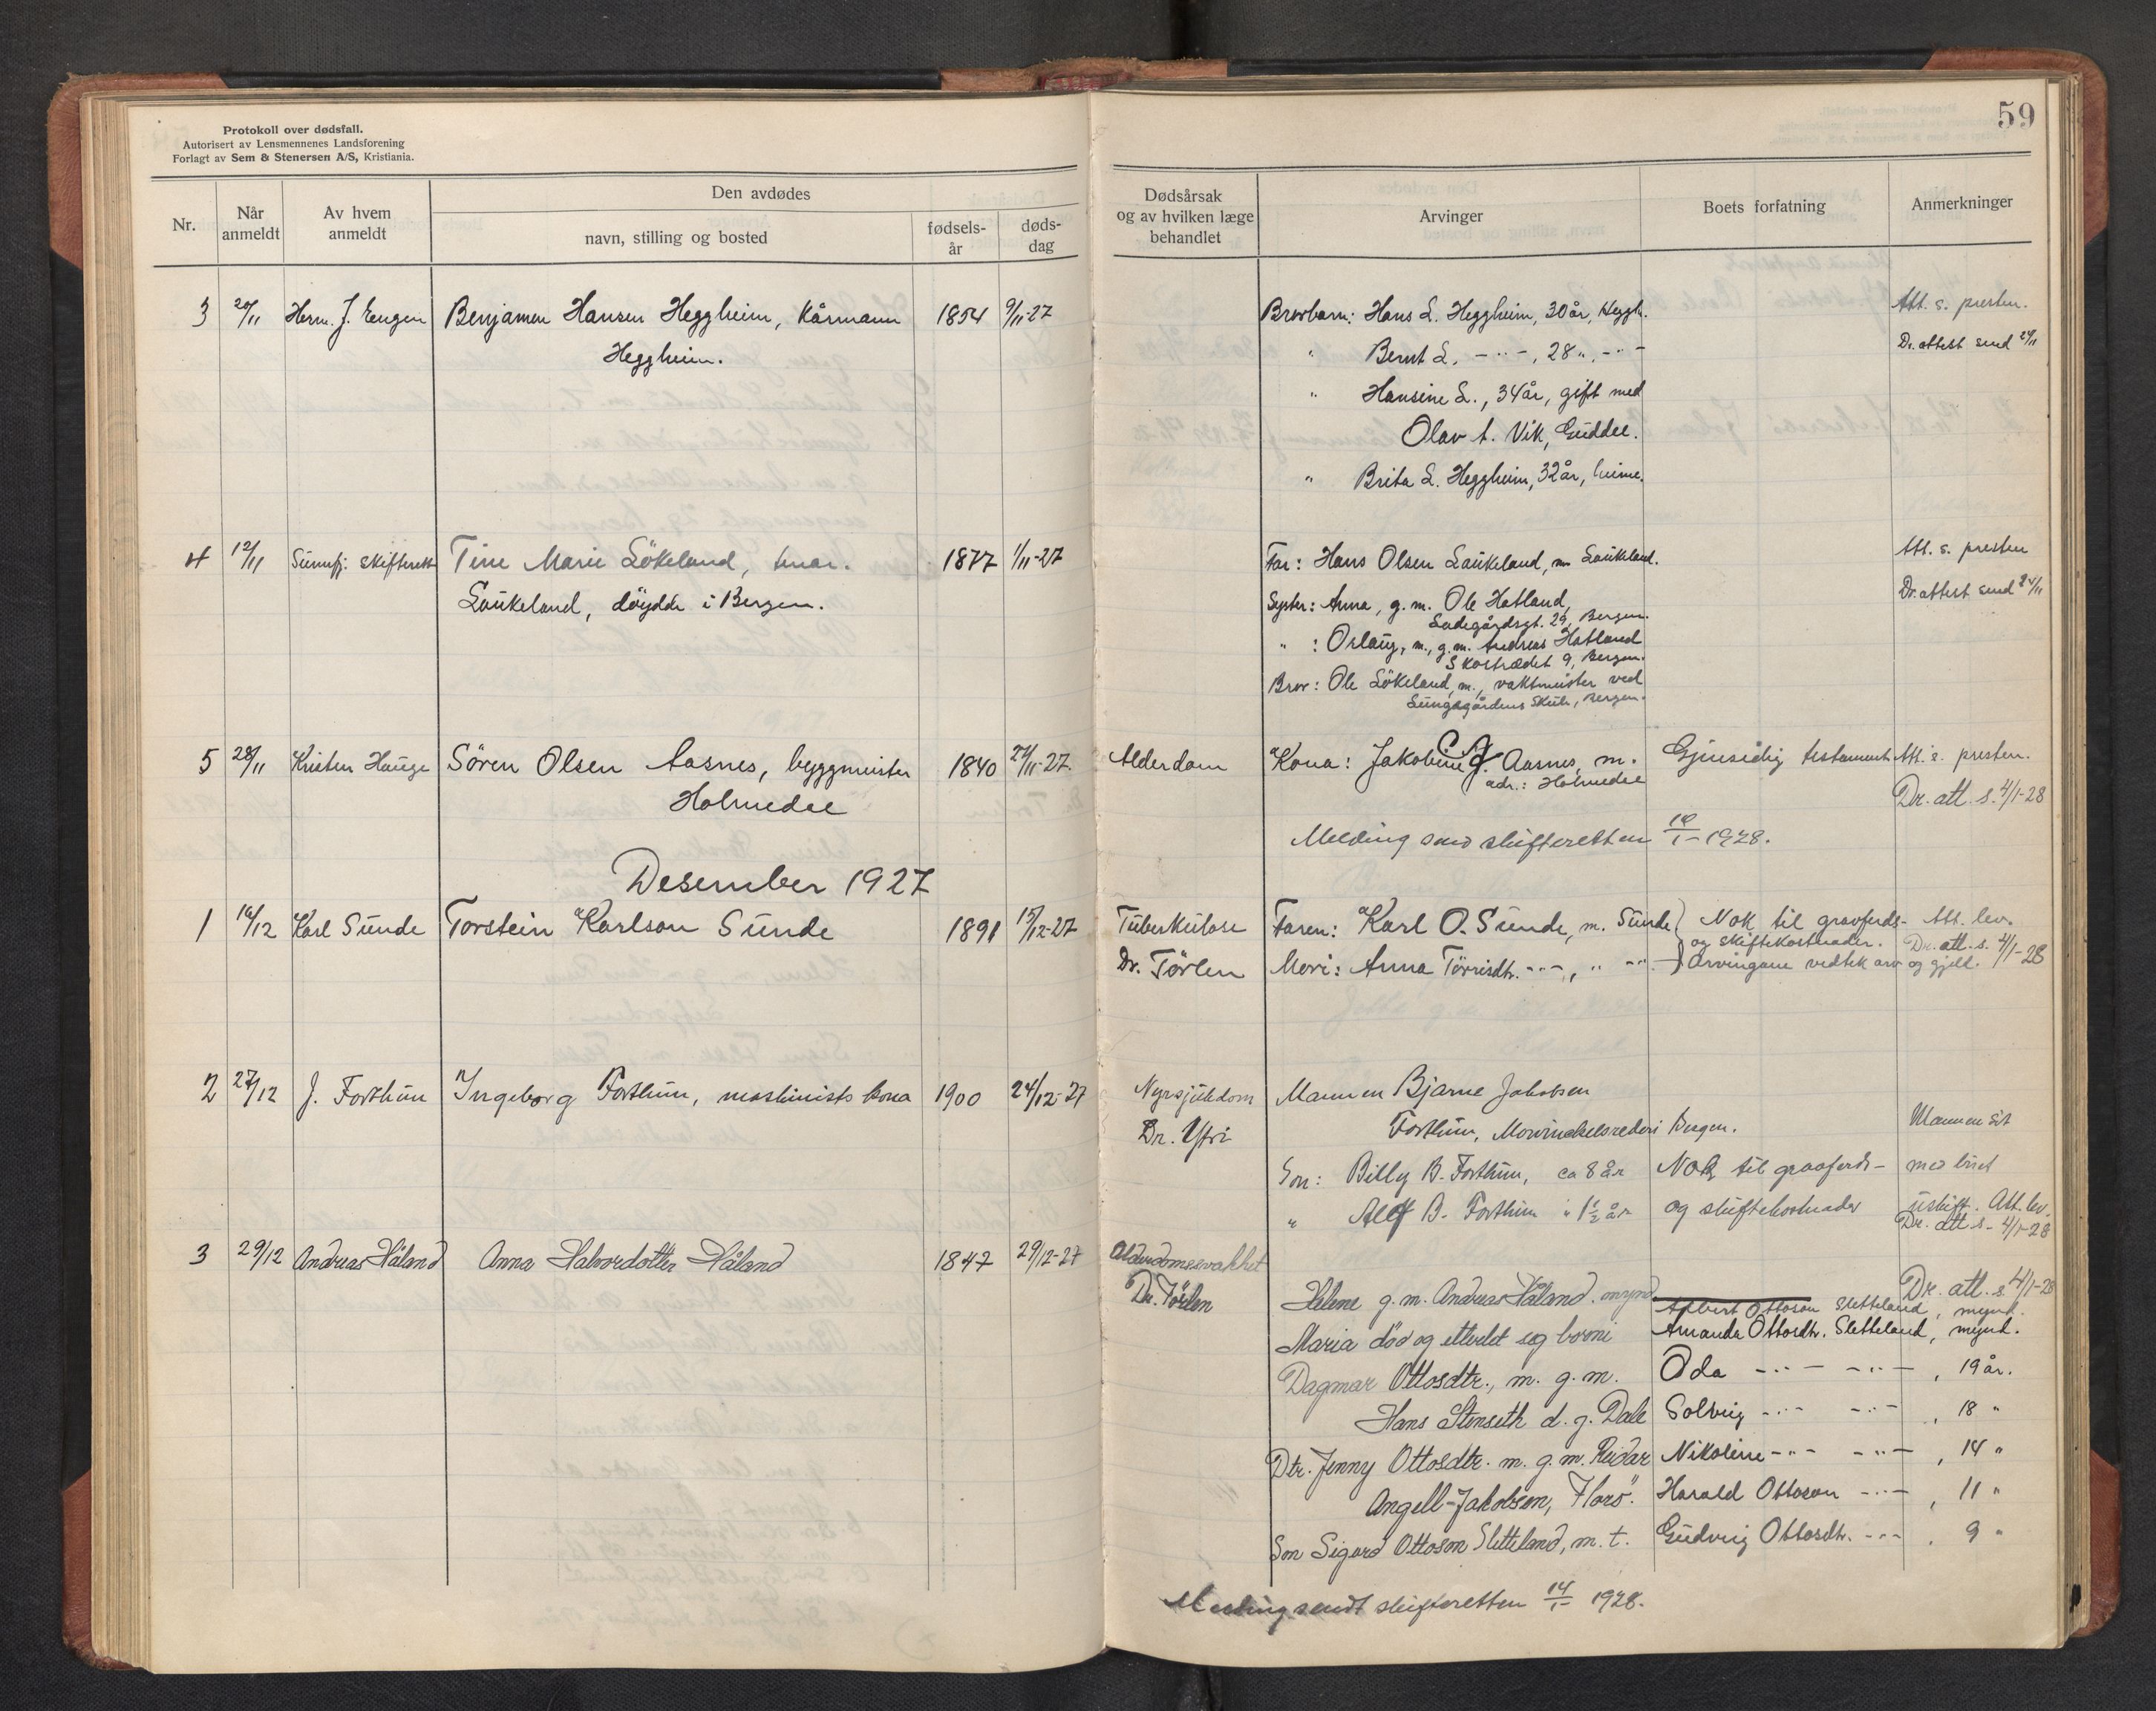 Protokoll over dødsfall.
Autorisert av Lensmennenes Landsforening
Forlagt av Sem & Stenersen A/S, Kristiania.
59
Nr.
Når anmeldt
Av hvem anmeldt
Den avdødes
navn, stilling og bosted
fødsels-år
døds-dag
Dødsårsak og av hvilken læge behandlet
Arvinger
Boets forfatning
Anmerkninger
3 20/11 Herm. J. Engen Benjamen Hansen Heggheim, Kårmann 1854 9/11-27 Brorbarn: Hans L. Heggheim, 30 år, Heggh. Att. s. presten.
Heggheim. " Bernt L. -"-, 28 ", -"- Dr. attest send 24/11
" Hansine L., 34 år, gift med
Olav A. Vik, Guddal.
" Brita L. Heggheim, 32 år, heime.
4 12/11 Sunnfj. skifterett Tine Marie Lökeland, 1877 1/11-27 Far: Hans Olsen Laukeland, m Laukeland. Att. s. presten
Laukeland, döydde i Bergen. Syster: Anna, g.m. Ole Hatland, Dr. attest send 24/11
Ladegårdsgt. 29, Bergen.
" : Orlaug, m., g.m. Andreas Hatland
Skostrædet 9, Bergen.
Bror: Ole Lökeland, m., vaktmeister ved
Lungegårdens Skule, Bergen.
5 28/11 Kristen Hauge Sören Olsen Aasnes, byggmeister 1840 24/11-27. Alderdom Kona: Jakobine J. Aasnes, m. Gjensidig testament Att. s. presten.
Holmedal adr.: Holmedal Dr. att. s. 4/1-28
Melding send skifteretten 10/1-1928.
Desember 1927
1 16/12 Karl Sunde Torstein Karlson Sunde 1891 15/12-27 Tuberkulose Faren: Karl O. Sunde, m. Sunde Nok til gravferds- Att. lev.
og skiftekostnader. Dr. att. s. 4/1-28
Dr. Törlen Mori: Anna Törrisdtr. -"-, " -"- Arvingane vedtek arv og gjeld.
2 27/12 J. Forthun Ingeborg Forthun, maskinists kona 1900 24/12-27 Nyrsjukdom Mannen Bjarne Jakobsen
Dr. Ytri Forthun, Mowinckelsrederi Bergen. Mannen sit
Son: Billy B. Forthun, ca 8 år Nok til gravferds- med buet
" Alf B. Forthun " 1 1/2 år og skiftekostnader uskift. Att. lev.
Dr. att s. 4/1-28
3 29/12 Andreas Håland Anna Halvordotter Håland 1847 29/12-27 Alderdomssvakhet
Dr. Törlen Helene g.m. Andreas Håland. mynd Dr. att. s. 4/1-28
Albert Ottoson Sletteland, mynd.
Maria död og etterlet seg borni Amanda Ottosdtr. Sletteland, mynd.
Dagmar Ottosdtr., m. g.m. Oda -"- -"-, 19 år.
Hans Stenseth d. g. Dale Solveig -"- -"-, 18 "
Dtr. Jenny Ottosdtr. m. g.m. Reidar Nikoline -"- -"-, 14 "
Angell-Jakobsen, Florö. Harald Ottoson -"-, 11 "
Son Sigurd Ottoson Sletteland, m. t. Gudveig Ottosdtr. -"-, 9 "
Melding sendt skifteretten 14/1- 1928.